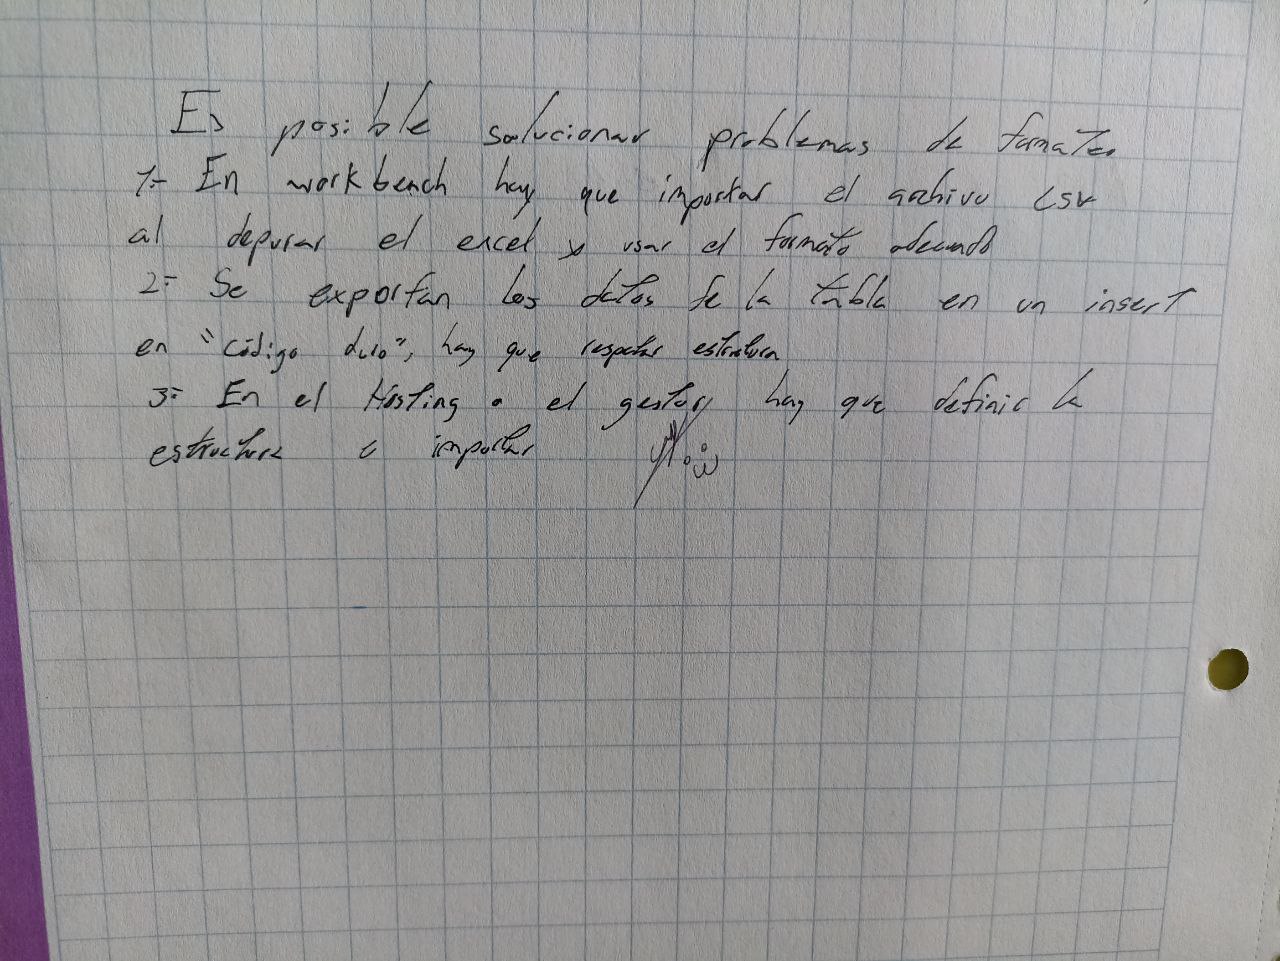 Es posible solucionar problemas de formateo
1:- En workbench hay que importar el archivo csv
al depurar el excel y usar el formato adecuado
2:- Se exportan los datos de la tabla en un insert
en "código duro", hay que respetar estructura
3:- En el Hosting o el gestor hay que definir la
estructura e importar